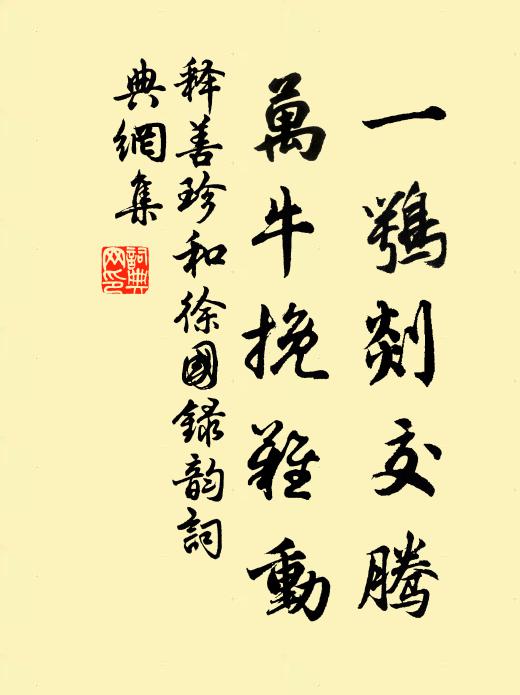 一鶚剡交騰
萬牛挽難動
释善珍和徐國録韵詞
典網集
詞典
网印